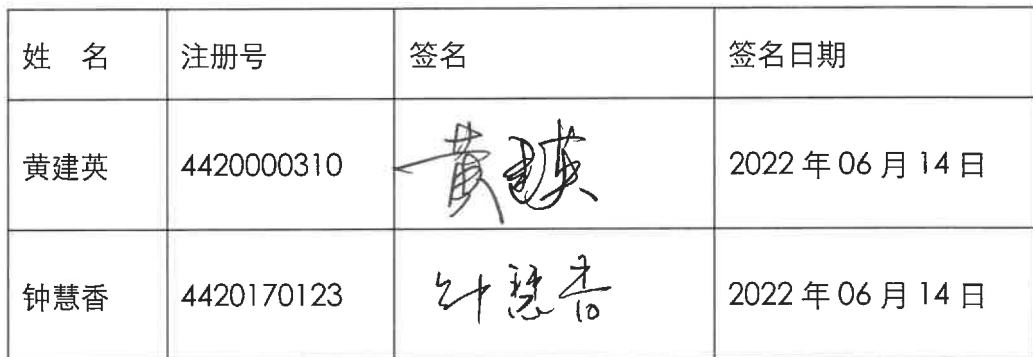 姓 名 注册号 签名 签名日期
黄建英 4420000310 黄建英 2022 年 06 月 14 日
钟慧香 4420170123 钟慧香 2022 年 06 月 14 日